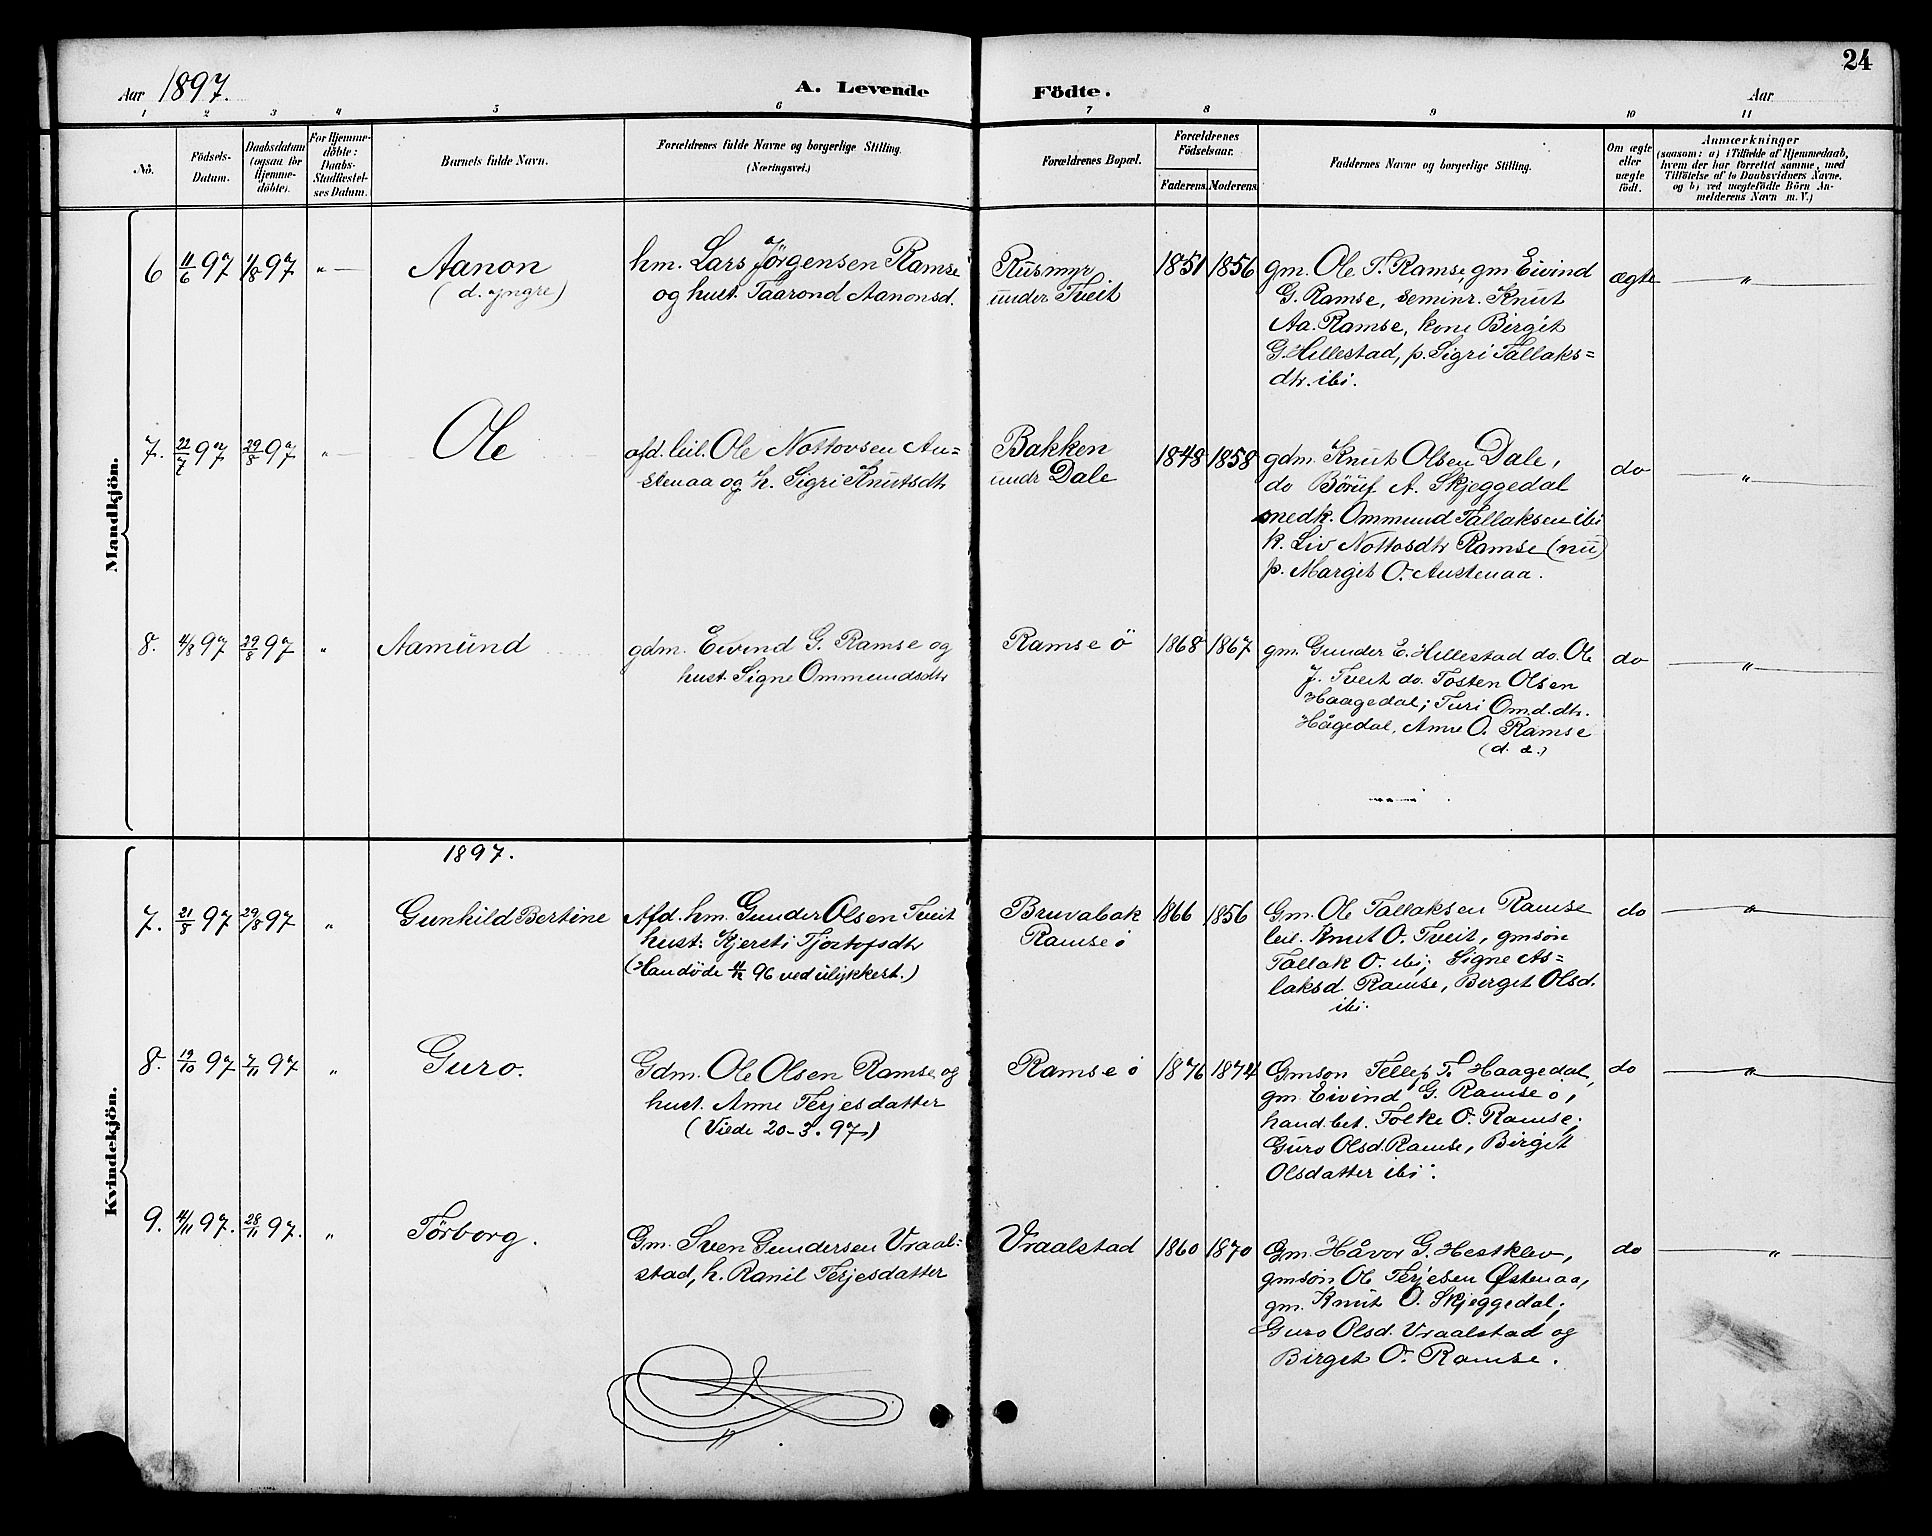 24
Aar 1897.
A. Levende Födte.
Aar
1 2 3 4 5 6 7 8 9 10 11
No.
Födsels-Datum.
Daabsdatum (ogsaa for Hjemme-döbte).
For Hjemme-döbte: Daabs-Stadfæstel-ses Datum.
Barnets fulde Navn.
Forældrenes fulde Navne og borgerlige Stilling. (Næringsvei.)
Forældrenes Bopæl.
Forældrenes Födselsaar.
Faderens. Moderens.
Faddernes Navne og borgerlige Stilling.
Om ægte eller uægte födt.
Anmærkninger
(saasom: a) i Tilfælde af Hjemmedaab,
hvem der har forrettet samme, med
Tilföielse af to Daabsvidners Navne,
og b) ved uægtefödte Börn An-
melderens Navn m. V.)
Mandkjön.
6 11/6 97 1/8 97 " Aanon
(d. yngre)
hm. Lars Jörgensen Ramse
og hust. Taarond Aanonsd.
Rusmyr
under Tveit
1851 1856
gm. Ole T. Ramse, gm Eivind
G. Ramse, seminr. Knut
Aa. Ramse, kone Birgit
G. Hillestad, p. Sigri Tallaks=
dtr. ibi.
ægte "
7. 22/7 97 29/8 97 " Ole
afd. leil. Ole Nottovsen Au=
stenaa og h. Sigri Knutsdtr
Bakken
undr Dale
1848 1858
gdm. Knut Olsen Dale,
do Böruf A. Skjeggedal
snedk. Ommund Tallaksen ibi
k. Liv Nottosdtr Ramse (nu)
p. Margit O. Austenaa.
do "
8. 4/8 97 29/8 97 " Aamund
gdm. Eivind G. Ramse og
hust. Signe Ommundsdtr
Ramse ö
1868 1867
gm. Gunder E. Hillestad do. Ole
J. Tveit do. Tosten Olsen
Haagedal; Turi Om.d.dtr.
Hågedal, Anne O. Ramse
(d. æ.)
do "
Kvindekjön.
1897.
7. 21/8 97 29/8 97 " Gunhild Bertine
Afd. hm. Gunder Olsen Tveit
hust. Kjersti Tjostofsdtr
(Han döde 4/12 96 ved ulykkest.)
Bruvabak
Ramse ö
1866 1856
Gm. Ole Tallaksen Ramse
leil. Knut O. Tveit, gmsön
Tallak O. ibi; Signe As=
laksd. Ramse, Berget Olsd.
ibi.
do "
8. 19/10 97 7/11 97 " Guro.
Gdm. Ole Olsen Ramse og
hust. Anne Terjesdatter
(Viede 20-3. 97.)
Ramse ö
1876 1874
Gmson Tellef T. Haagedal,
gm. Eivind G. Ramse ö,
hand.bet. Folke O. Ramse;
Guro Olsd. Ramse, Birgit
Olsdatter ibi.
do "
9. 4/11 97. 28/11 97. " Törborg.
Gm. Sven Gundersen Vraal=
stad, h. Ranil Terjesdatter
Vraalstad
1860 1870
Gm. Håvor G. Hestklev,
gmsön Ole Terjesen Østenaa,
gm. Knut O. Skjeggedal;
Guro Olsd. Vraalstad og
Birget O. Ramse.
do "